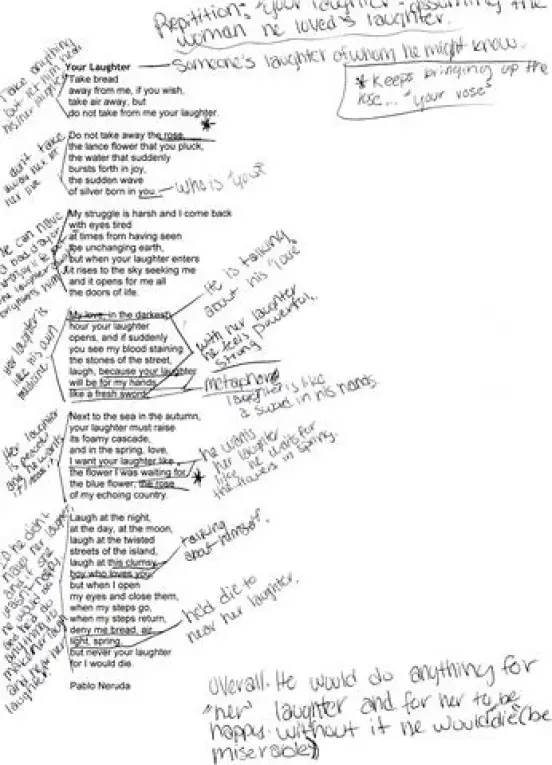 Repitition: "your laughter" - assuming the
woman he loved's laughter.
someone's laughter of whom he might know.
* Keeps bringing up the
rose... "your rose"
Take anything
but her
Your Laughter
Take bread
away from me, if you wish,
take air away, but
do not take from me your laughter.
*
don't take
away
her live
Do not take away the rose,
the lance flower that you pluck,
the water that suddenly
bursts forth in joy,
the sudden wave
of silver born in you.
who is "you"
He can have
a bad day
her laughter
brightens him
My struggle is harsh and I come back
with eyes tired
at times from having seen
the unchanging earth,
but when your laughter enters
it rises to the sky seeking me
and it opens for me all
the doors of life.
He is talking
about his "love"
Her laughter is
like his own
medicine.
My love, in the darkest
hour your laughter
opens, and if suddenly
you see my blood staining
the stones of the street,
laugh, because your laughter
will be for my hands
like a fresh sword.
with her laughter
he feels powerful,
strong
metaphor
laughter is like
a sword in his hands.
Her laughter
is
and he wants
Next to the sea in the autumn,
your laughter must raise
its foamy cascade,
and in the spring, love,
I want your laughter like
the flower I was waiting for,
the blue flower, the rose
of my echoing country.
*
he wants
her laughter
like he waits for
the flowers in spring.
If he didn't
have her laughter
and if she
wasn't happy
he would die
and he'd do
anything to
make her laugh
and hear her
laughter.
Laugh at the night,
at the day, at the moon,
laugh at the twisted
streets of the island,
laugh at this clumsy
boy who loves you,
but when I open
my eyes and close them,
when my steps go,
when my steps return,
deny me bread, air,
light, spring,
but never your laughter
for I would die.
talking
about himself.
he'd die to
hear her laughter.
Pablo Neruda
overall: He would do anything for
"her" laughter and for her to be
happy. without it he would die (be
miserable)